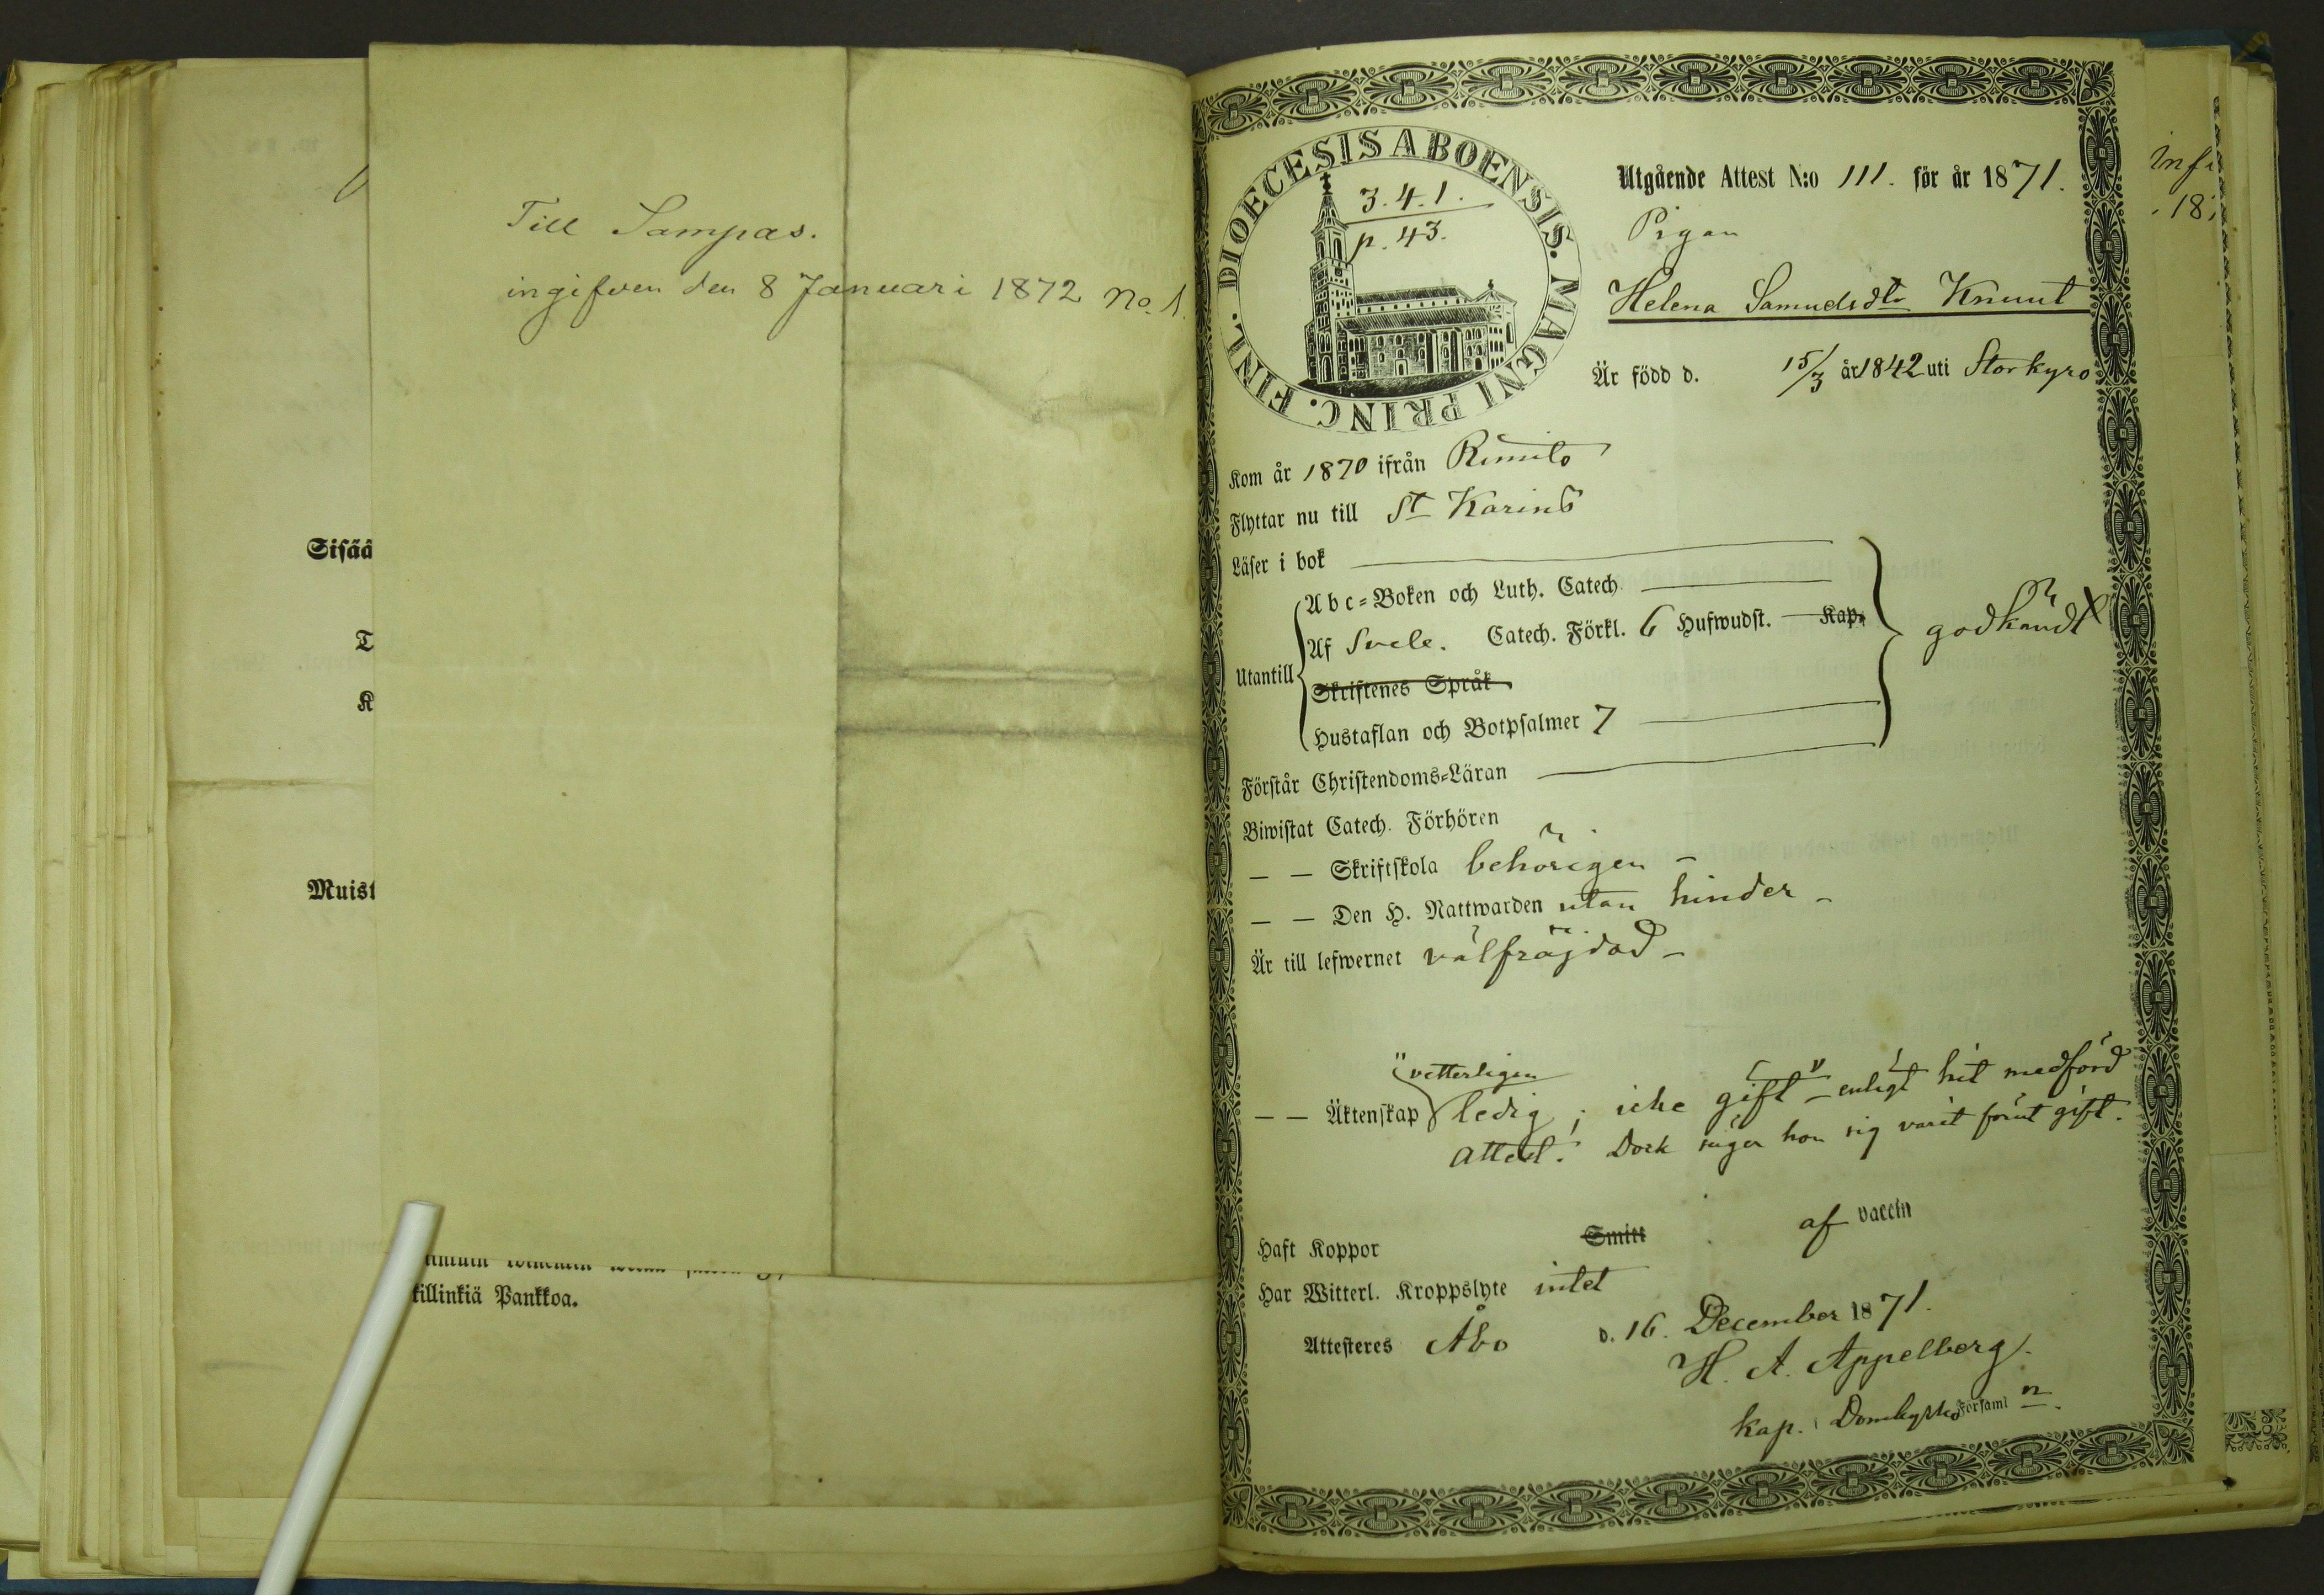 Till Sampas.
ingifven den 8 Januari 1872 No. 1.
Sisää
T
K
Muist
killinkiä Pankkoa.
DIOECESIS ABOENSIS. MAGNI PRINC. FINL.
3.4.1.
p. 43.
Utgående Attest N:o 111. för år 1871.
Pigan
Helena Samuelsdtr Knuut
Är född d. 15/3 år 1842 uti Storkyro
Kom år 1870 ifrån Rimito
Flyttar nu till St Karins
Läser i bok
Utantill
Abc=Boken och Luth. Catech.
Af Svele. Catech. Förkl. 6 Hufwudst. Kap.
Skriftenes Språk
Hustaflan och Botpsalmer 7
godkändt
Förstår Christendoms=Läran
Biwistat Catech. Förhören
— — Skriftskola behörigen –
— — Den H. Nattwarden utan hinder –
Är till lefwernet välfräjdad –
vetterligen
— — Äktenskap ledig; icke gift – enligt hit medförd
attest. Dock säger hon sig varit förut gift.
Haft Koppor Smitt af vaccin
Har Witterl. Kroppslyte intet
Attesteres Åbo d. 16. December 1871.
H. A. Appelberg.
kap. i Domkyrko Församl n.
18